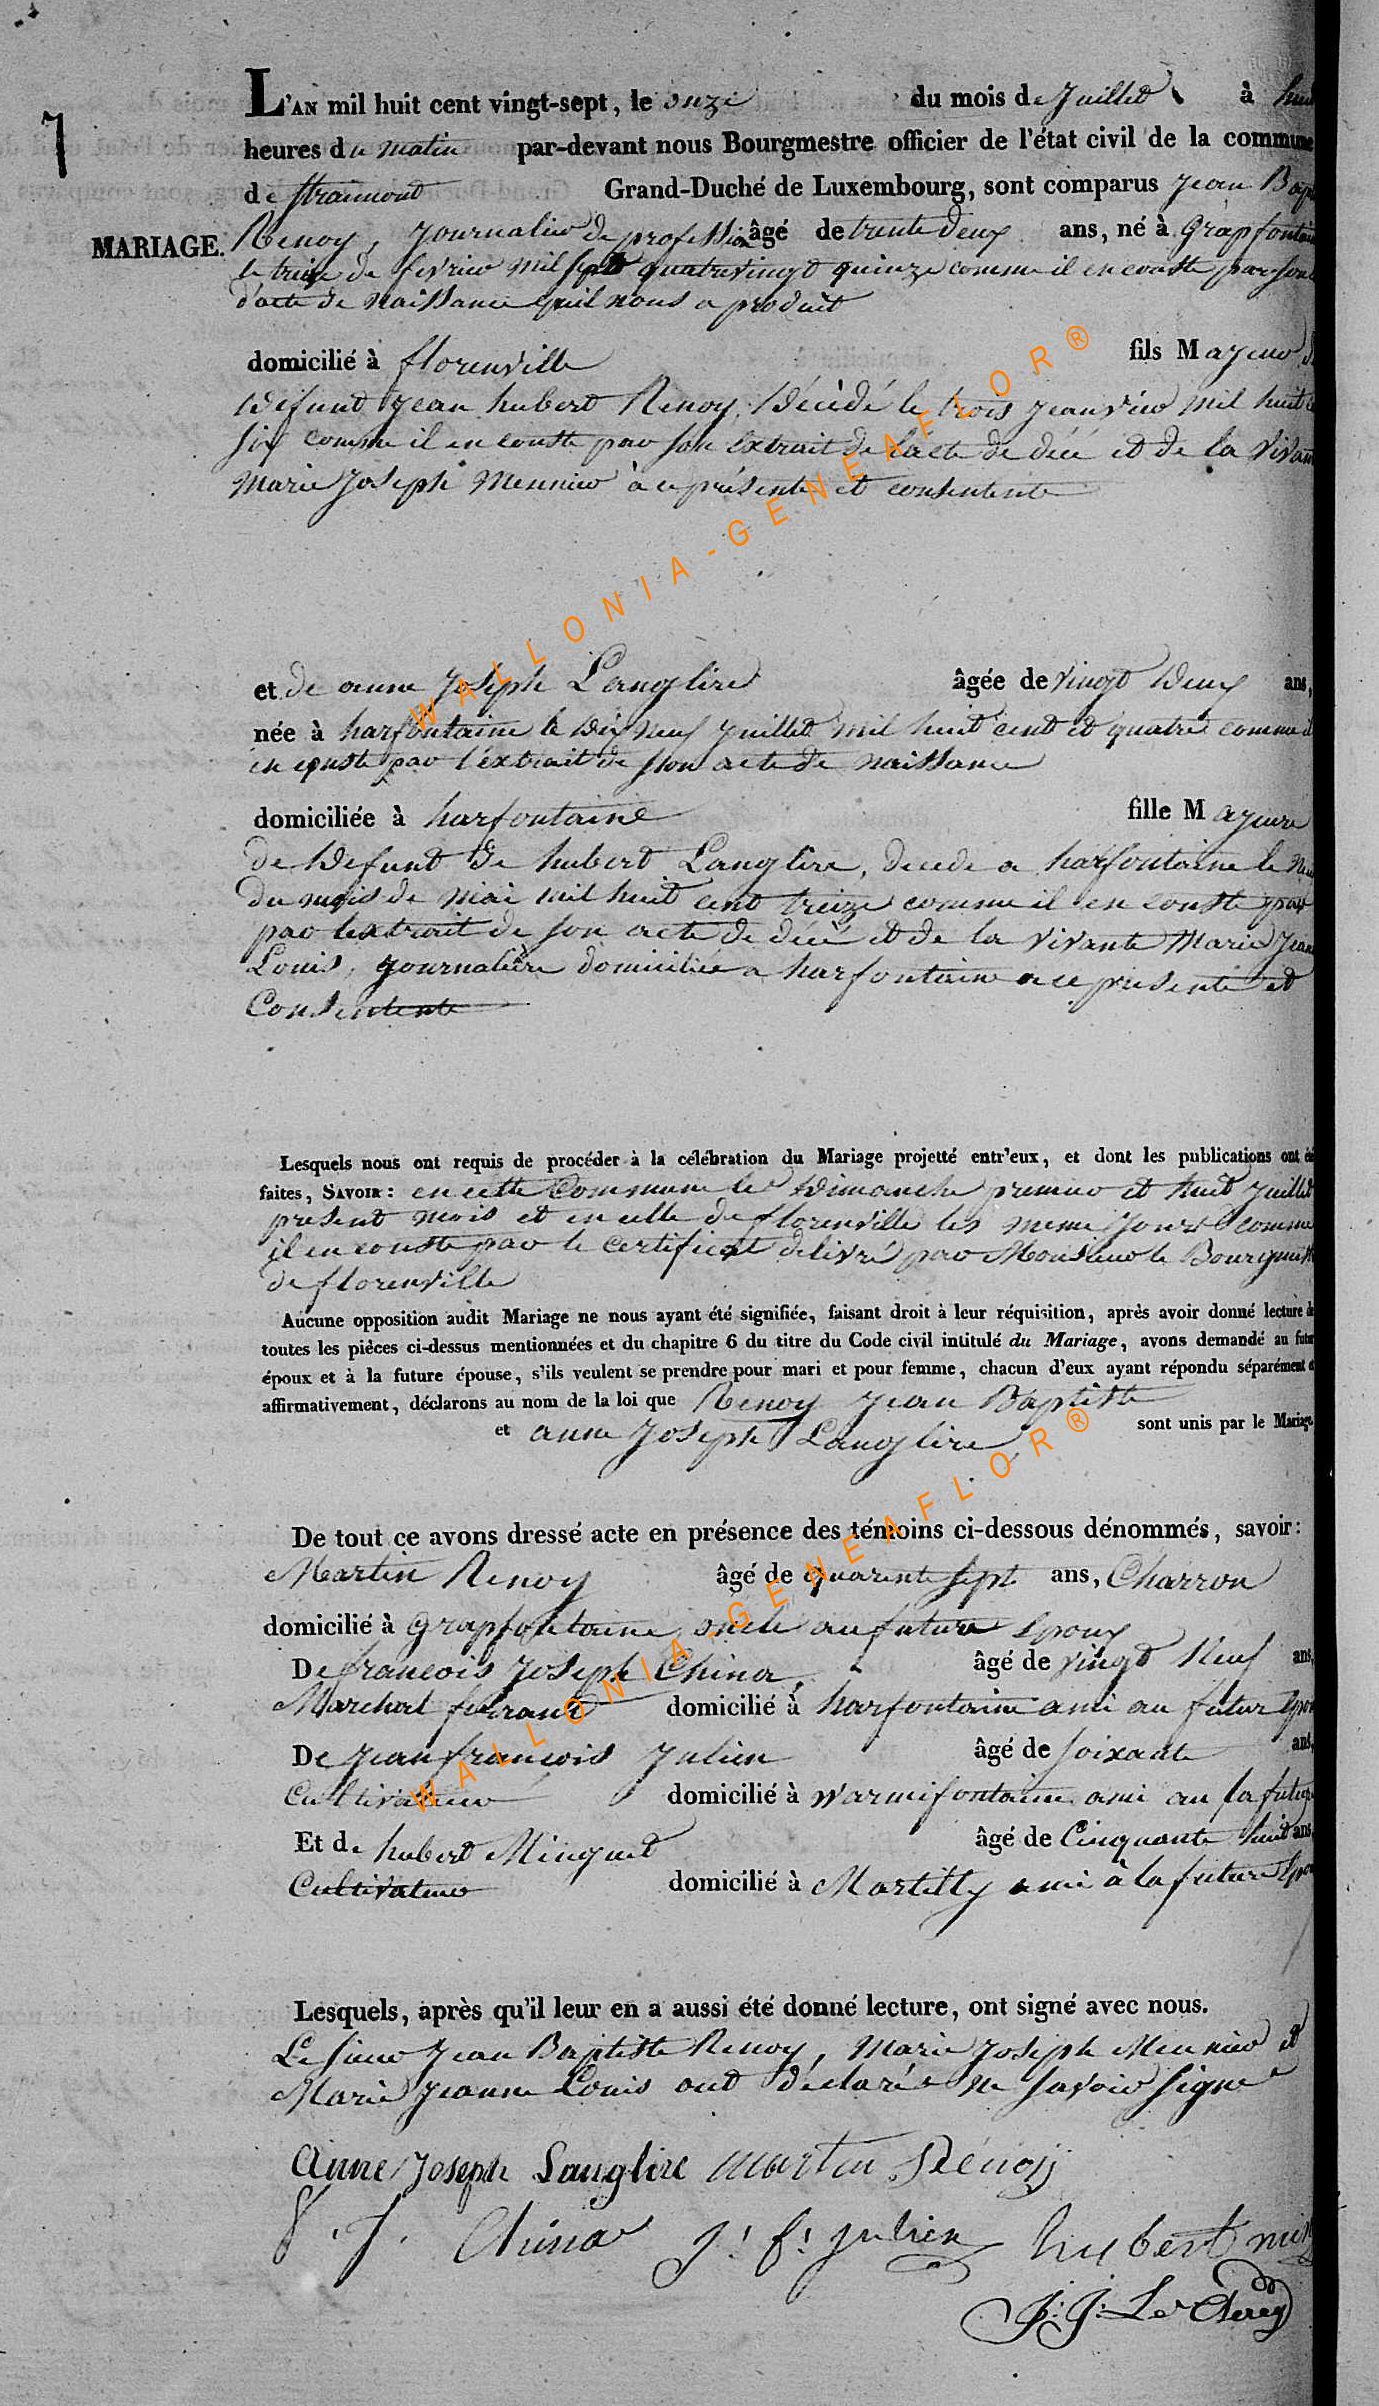 7
L'AN mil huit cent vingt-sept, le onze du mois de Juillet à huit
heures du matin par-devant nous Bourgmestre officier de l'état civil de la commune
de Straimont Grand-Duché de Luxembourg, sont comparus Jean Bap
MARIAGE.
Renoy, Journalier de profession âgé de trente deux ans, né à Grapfontaine
le treize de fevrier mil sept quatrevingt quinze comme il en conste par son
d'acte de naissance qu'il nous a produit
domicilié à florenville fils Majeur de
Défunt Jean hubert Renoy, Décédé le trois Jeanvier mil huit
six comme il en conste par son Extrait de l'acte de décé et de la vivante
Marie Joseph Mennier à ce présente et consentente
et de anne Joseph Langlire âgée de vingt Deux ans,
née à harfontaine le Dix Neuf Juillet mil huit cent et quatre comme il
en conste par l'éxtrait de son acte de naissance
domiciliée à harfontaine fille Majeure
de Defunt de hubert Langlire, decede a harfontaine le
Du mois de mai mil huit cent treize comme il en conste par
par lextrait de son acte de décé et de la vivante Marie Jean
Louis, journalière domiciliée a harfontaine a ce presente et
Consentente
Lesquels nous ont requis de procéder à la célébration du Mariage projetté entr'eux, et dont les publications ont été
faites, SAVOIR : en cette Commune les Dimanche premier et huit Juillet
present mois et en celle de florenville les meme Jours comme
il en conste par le certificat delivré par Monsieur le Bourgmest
de florenville
Aucune opposition audit Mariage ne nous ayant été signifiée, faisant droit à leur réquisition, après avoir donné lecture de
toutes les pièces ci-dessus mentionnées et du chapitre 6 du titre du Code civil intitulé du Mariage, avons demandé au futur
époux et à la future épouse, s'ils veulent se prendre pour mari et pour femme, chacun d'eux ayant répondu séparément et
affirmativement, déclarons au nom de la loi que Renoy Jean Baptiste
et anne Joseph Langlire sont unis par le Mariage
De tout ce avons dressé acte en présence des témoins ci-dessous dénommés, savoir :
Martin Renoy âgé de quarente sept ans, Charron
domicilié à Grapfontaine oncle au future Epoux
De francois Joseph China, âgé de vingt Neuf ans,
Marchal ferrant domicilié à harfontaine ami au futur Epou
De Jean francois Julien âgé de soixante ans,
Cultivateur domicilié à Warmifontaine ami au la future
Et de hubert Minguet âgé de Cinquante huit ans,
Cultivateur domicilié à Martilly ami à la future Epou
Lesquels, après qu'il leur en a aussi été donné lecture, ont signé avec nous.
Le sieur Jean Baptiste Renoy, Marie Joseph Mennier et
Marie Jeanne Louis ont déclarée ne savoir signe
Anne Joseph Langlire martin Rénoÿ
F. J. China J. f. Julien hubert min
J. J. Le Clerey
WALLONIA-GENEAFLOR®
WALLONIA-GENEAFLOR®